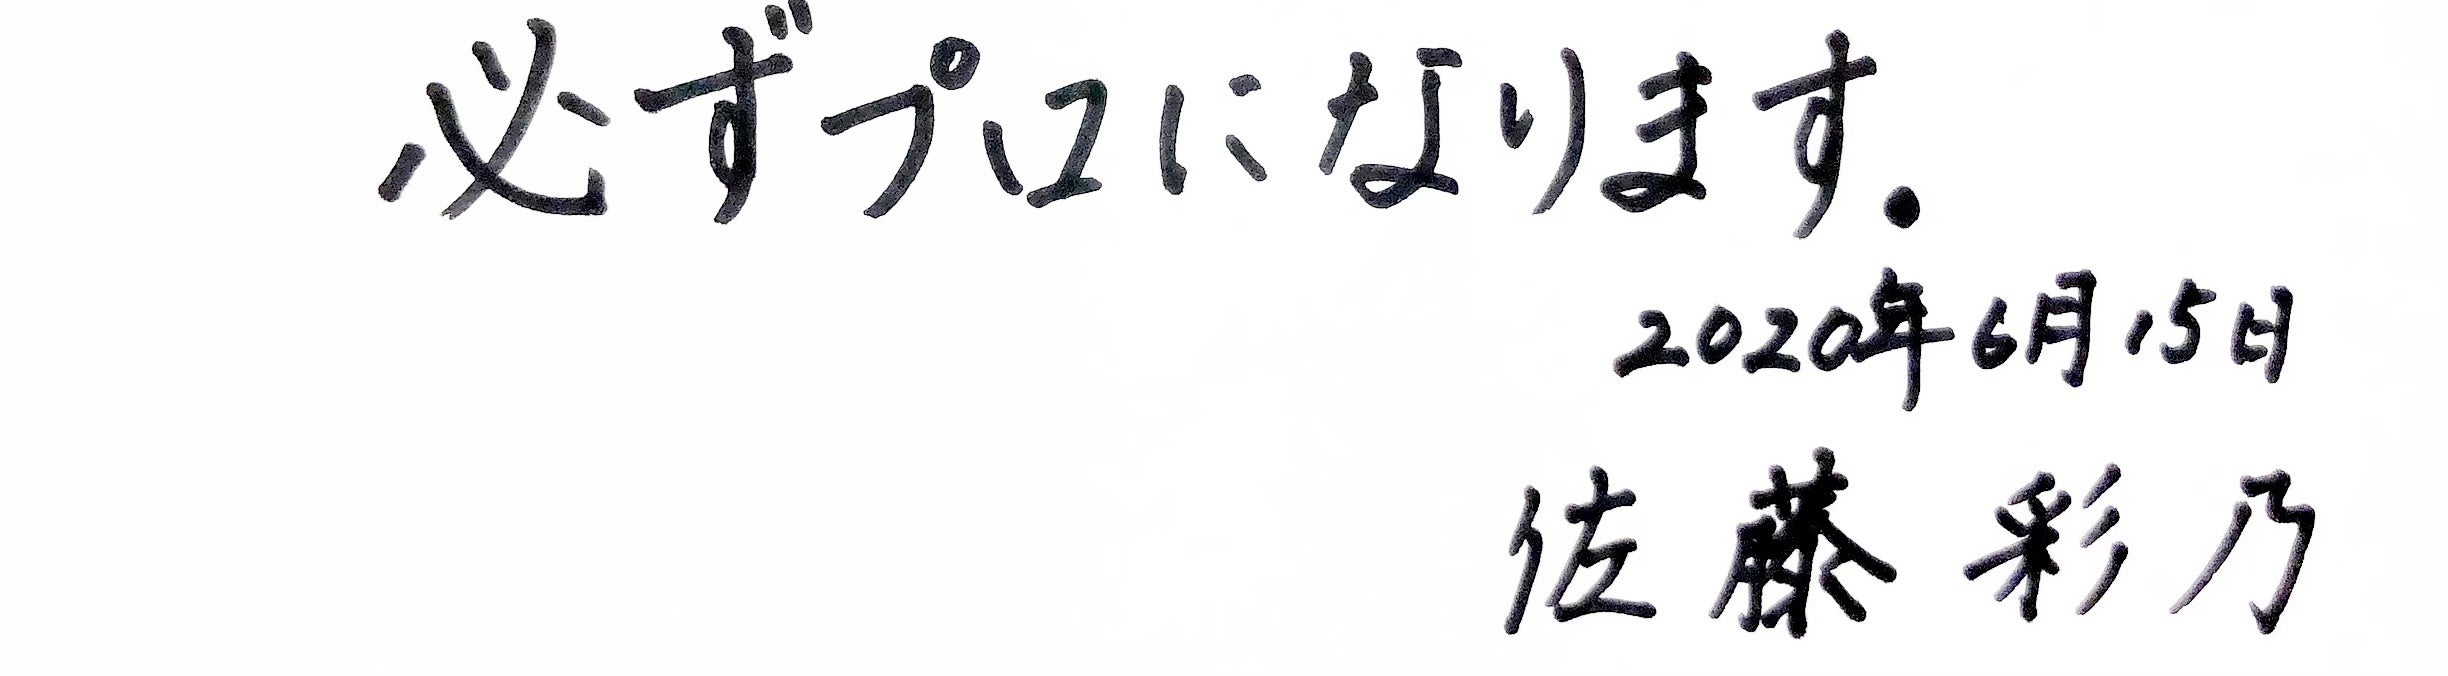 必ずプロになります.
2020年6月15日
佐藤彩乃